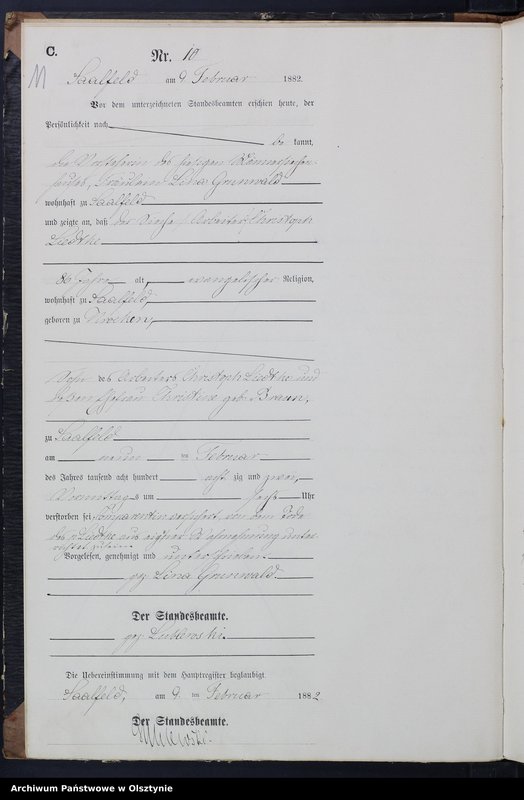 C.
Nr. 10
11
Saalfeld am 9 Februar 1882.
Vor dem unterzeichneten Standesbeamten erschien heute, der
Persönlichkeit nach
be kannt,
die Vorsteherin des hiesigen
Fräulein Lina Grunwald
wohnhaft zu Saalfeld
und zeigte an, daß der Arbeiter Christoph
Liedtke
86 Jahre alt, evangelischer Religion,
wohnhaft zu Saalfeld
geboren zu
Sohn des Arbeiters Christoph Liedtke und
dessen Ehefrau Christine geb. Braun,
zu Saalfeld
am neun ten Februar
des Jahres tausend acht hundert acht zig und zwei,
Vormittag s um sechs Uhr
verstorben sei Comparentin versichert, von dem Tode
des p. Liedtke aus eigener Wahrnehmung unter
richtet zu sein.
Vorgelesen, genehmigt und unterschrieben.
gez. Lina Grunwald.
Der Standesbeamte.
gez.
Die Uebereinstimmung mit dem Hauptregister beglaubigt.
Saalfeld, am 9. ten Februar 1882
Der Standesbeamte.
Archiwum Państwowe w Olsztynie